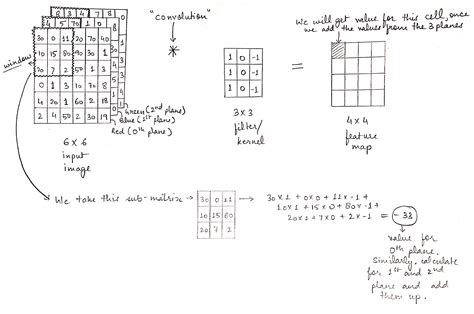 "convolution"
We will get value for this cell, once
we add the values from the 3 planes
window
2 3 4 7
4 5 70 1
30 0 11 20 70 40
10 15 80 90 30 1
20 7 2 50 1 3
0 1 3 10 70 8
4 20 1 60 2 18
2 4 50 19
Green (2nd plane)
Blue (1st plane)
Red (0th plane)
6 x 6
input
image
*
1 0 -1
1 0 -1
1 0 -1
3 x 3
filter/
kernel
=
4 x 4
feature
map
We take this sub-matrix
30 0 11
10 15 80
20 7 2
30x1 + 0x0 + 11x-1 +
10x1 + 15x0 + 80x-1 +
20x1 + 7x0 + 2x-1
= -33
value for
0th plane.
Similarly, calculate
for 1st and 2nd
plane and add
them up.